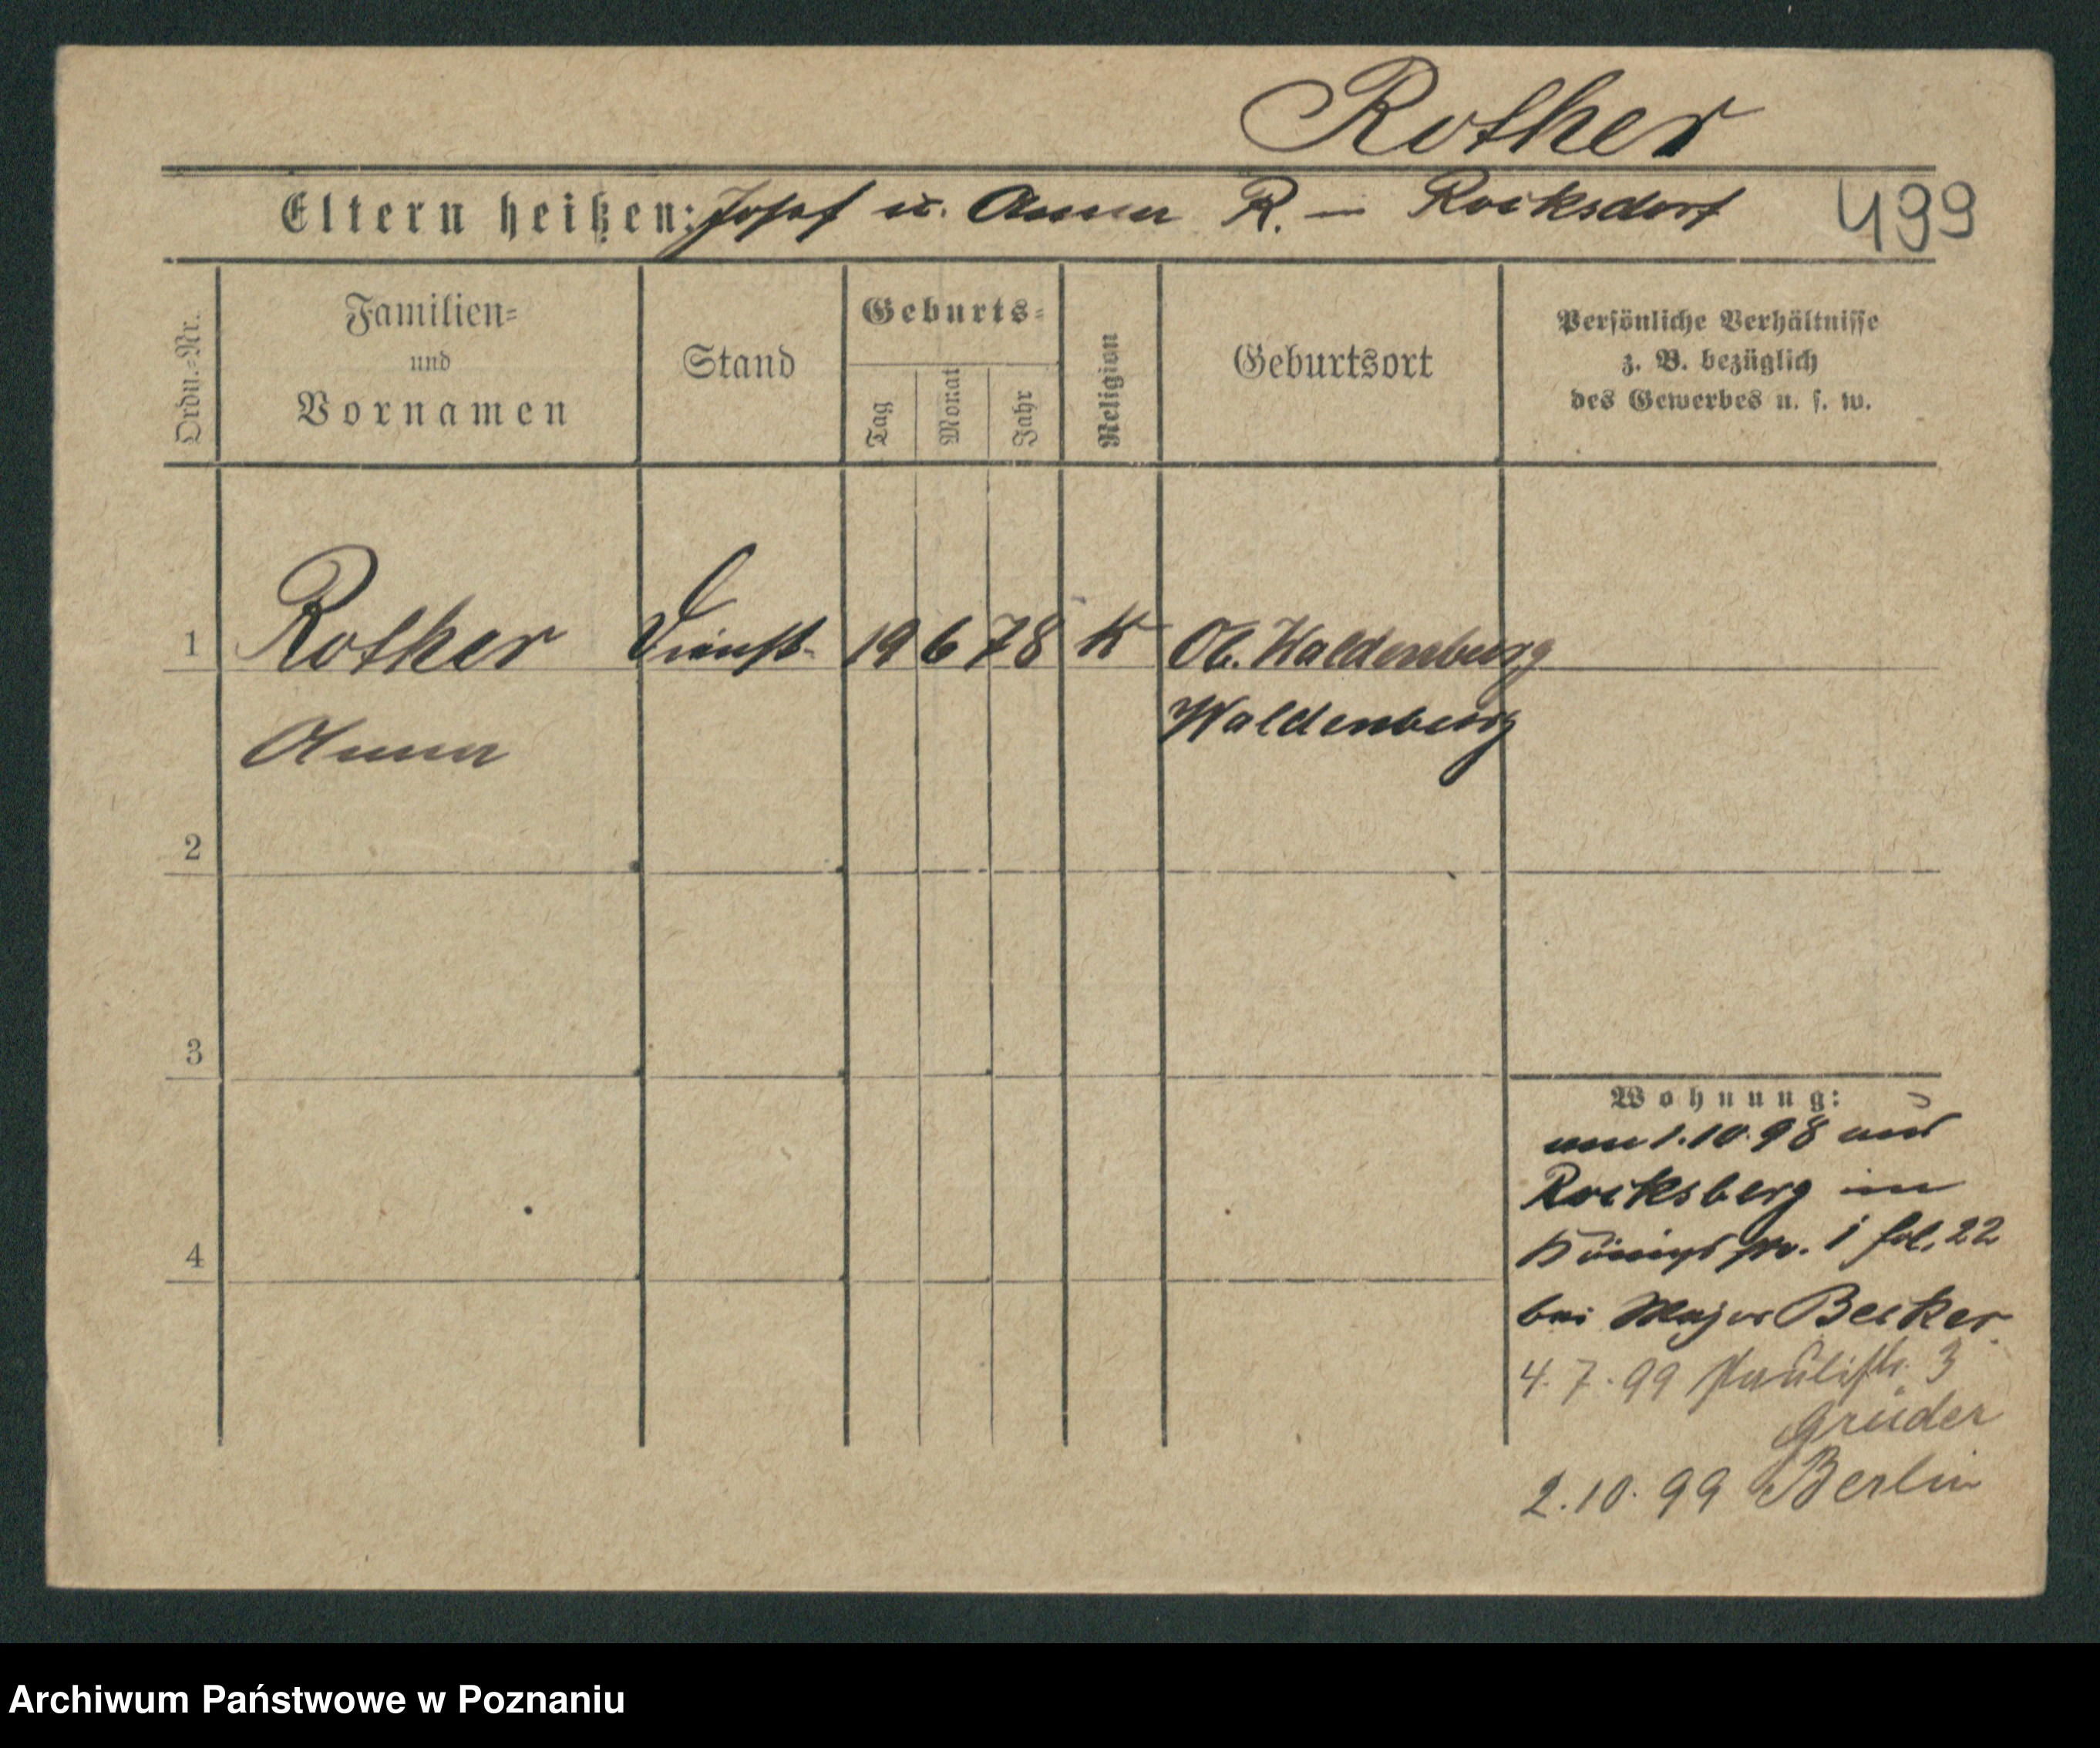 Rother
Eltern heißen: Josef u. Anna R. in Rocksdorf
499
Ordn.-Nr.
Familien-
und
Vornamen
Stand
Geburts-
Tag
Monat
Jahr
Religion
Geburtsort
Persönliche Verhältnisse
z. B. bezüglich
des Gewerbes u. s. w.
1 Rother Dienst- 19 6 78 K Ob. Waldenburg
Anna Waldenburg
2
3
4
Wohnung:
am 1.10.98 aus
Rocksberg in
Königspl. 1 fol. 22
bei Major Becker
4.7.99 Paulistr. 3
Grüder
2.10.99 Berlin
Archiwum Państwowe w Poznaniu